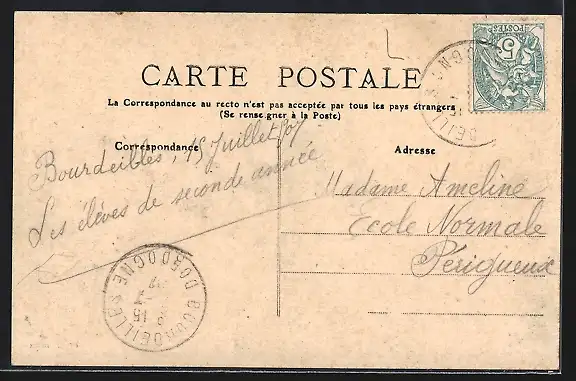 CARTE POSTALE
La Correspondance au recto n'est pas acceptée par tous les pays étrangers
(Se renseigner à la Poste)
Correspondance
Adresse
Bourdeilles, 15 Juillet 07
Les élèves de seconde année
Madame Ameline
Ecole Normale
Périgueux
POSTES
5
BOURDEILLES
DORDOGNE
15